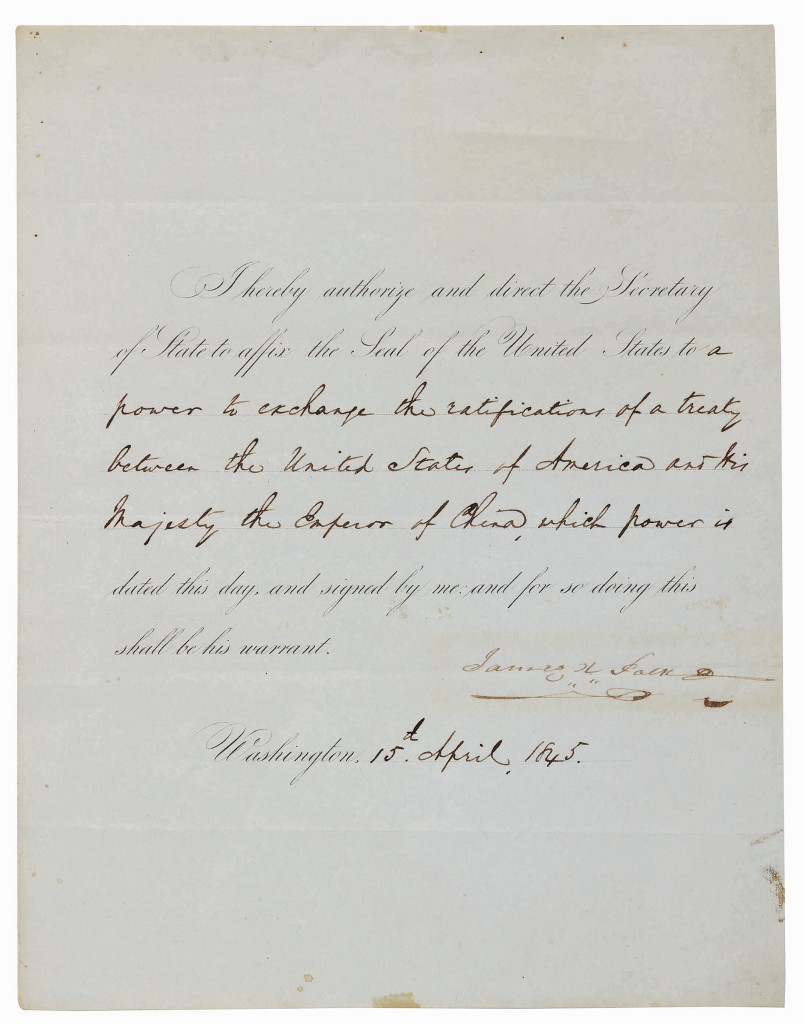 I hereby authorize and direct the Secretary
of State to affix the Seal of the United States to a
power to exchange the ratifications of a treaty
between the United States of America and His
Majesty the Emperor of China, which power is
dated this day, and signed by me: and for so doing this
shall be his warrant.
James K Polk
Washington, 15d. April, 1845.